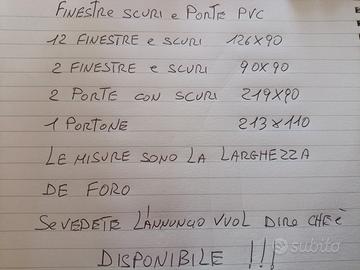 FINESTRE SCURI e PORTE PVC
12 FINESTRE e SCURI 126X90
2 FINESTRE e SCURI 90X90
2 PORTE CON SCURI 219X90
1 PORTONE 213X110
LE MISURE SONO LA LARGHEZZA
DE FORO
SE VEDETE L'ANNUNCIO VUOL DIRE CHE È
DISPONIBILE !!!
subito